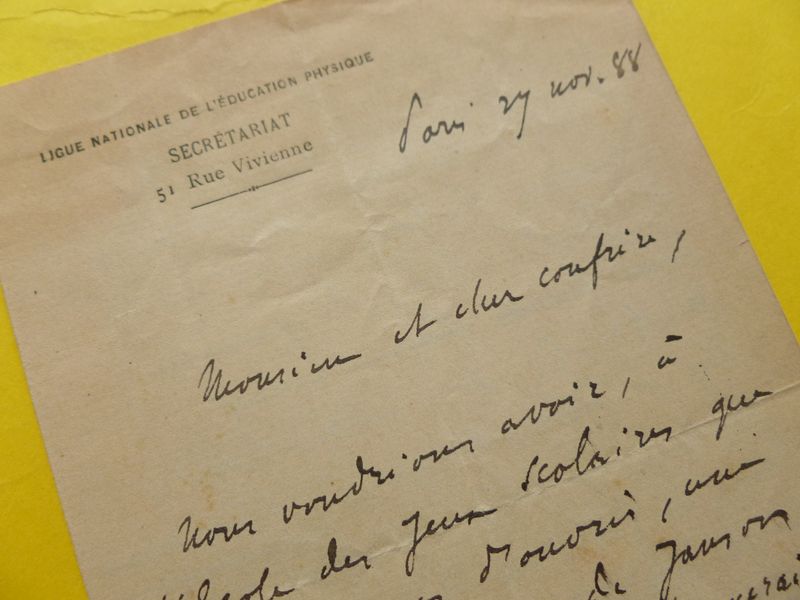 LIGUE NATIONALE DE L'ÉDUCATION PHYSIQUE
SECRÉTARIAT
51 Rue Vivienne
Paris 27 nov. 88
Monsieur et cher confrère,
Nous voudrions avoir, à
l'école des Jeux scolaires que
d'ouvrir, une
de Janson